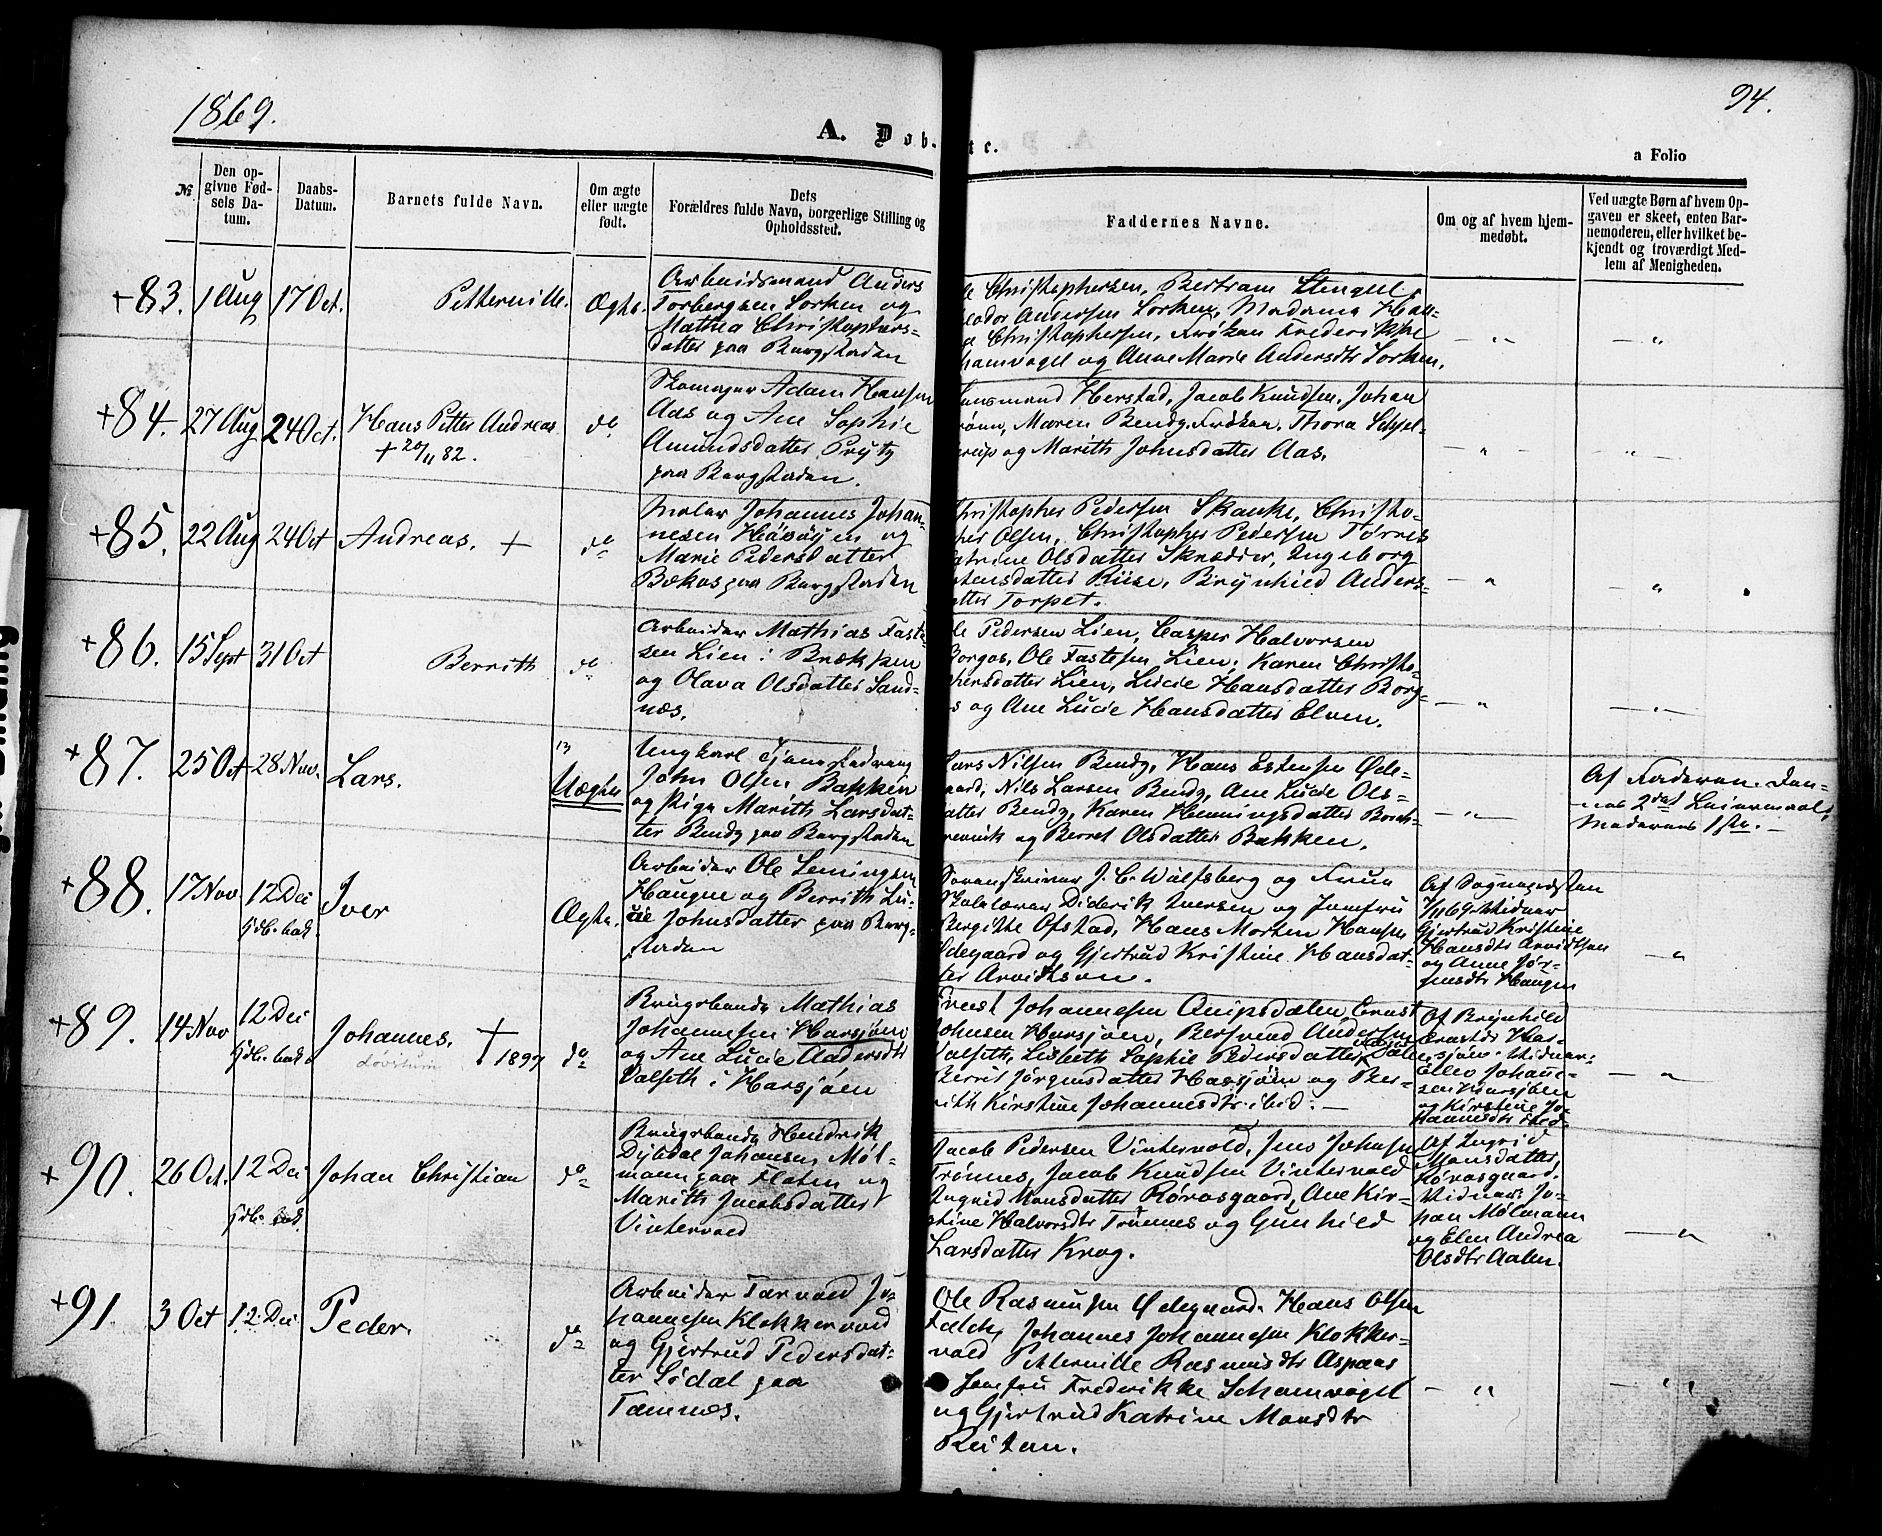 1869.
94.
A. Døb-
te.
a Folio
№
Den op-
givne Fød-
sels Da-
tum.
Daabs-
Datum.
Barnets fulde Navn.
Om ægte
eller uægte
født.
Dets
Forældres fulde Navn, borgerlige Stilling og
Opholdssted.
Faddernes Navne.
Om og af hvem hjem-
medøbt.
Ved uægte Børn af hvem Op-
gaven er skeet, enten Bar-
nemoderen, eller hvilket be-
kjendt og troværdigt Med-
lem af Menigheden.
+83. 1 Aug 17 Oct. Petterville. Ægte.
Arbeidsmand Anders
Torbergsen Sorken og
Mathea Christophers-
datter paa Bergstaden
le Christophersen, Bertram Stengel,
Andersen Sorken, Madame Han-
Christophersen, Frøken Frederikke
hamvogel og Ane Marie Andersdtr Sorken.
— " —
— "
+84. 27 Aug 24 Oct. Hans Petter Andreas do
+ 20/11 82.
Skomager Adam Hansen
Aas og Ane Sophie
Amundsdatter Prytz
paa Bergstaden.
ensmand Herstad, Jacob Knudsen, Johan
rønn, Maren Bendz, Frøken Thora Schjel-
rup og Marith Johnsdatter Aas.
— " —
— " —
+85. 22 Aug 24 Oct Andreas. + do
Maler Johannes Johan-
nesen Høvøyen og
Marie Pedersdatter
Bekos paa Bergstaden
hristopher Pedersen Skanke, Christo-
pher Olsen, Christopher Pedersen Tørres
atrine Olsdatter Skrædder, Ingeborg
rtensdatter Riise, Brynhild Anders-
atter Torpet.
— "
— "
+86. 15 Sept 31 Oct Berrith do
Arbeider Mathias Faste-
sen Lien i Brækken
og Olava Olsdatter Sand-
næs.
le Pedersen Lien, Casper Halvorsen
Borgos, Ole Fastesen Lien, Karen Christo-
phersdatter Lien, Lucie Hansdatter Borg-
s og Ane Lucie Hansdatter Elven.
— " —
— " —
+87. 25 Oct 28 Nov. Lars. 13
Uægte
Ungkarl Tjenestedreng
John Olsen Bakken
og Pige Marith Larsdat-
ter Bendz paa Bergstaden
Lars Nilsen Bendz, Hans Estensen Øde-
gaard, Nils Larsen Bendz, Ane Lucie Ols-
datter Bendz, Karen Henningsdatter Borch-
revink og Berret Olsdatter Bakken.
— " —
Af Faderen. Den-
nes 2det Leiermaal,
Moderens 1ste. —
+88. 17 Nov 12 Dec Iver Ægte.
Hdb. bek.
Arbeider Ole Lemingsen
Haugne og Berrith Lu-
cie Johnsdatter paa Berg-
staden
Sorenskriver J. C. Wulfsberg og Frue
Skolelærer Diderik Iversen og Jomfru
Bergitte Ofstad, Hans Morten Hansen
Ødegaard og Gjertrud Kristine Hansdat-
ter Arvidtsen.
Af Sognepresten
/11 69. Vidner
Gjertrud Kristine
Hansdtr Arvidtsen
og Anne Jør-
gensdtr Haugen
— "
+89. 14 Nov 12 Dec Johannes. + 1897 do
Hdb. bek.
Brugsbonde Mathias
Johannesen Harsjøen
og Ane Lucie Andersdtr
Valseth i Harsjøen
Ernst Johannesen Ormpsdalen, Ernst
Johnsen Harsjøen, Bersvend Andersen
Valseth, Lisbeth Sophie Pedersdatter
Berrit Jørgensdatter Harsjøen og Ber-
rith Kirstine Johannesdtr ibid. —
Af Brynhild
Ernstdtr Har-
sjøen. Vidner:
Ellev Johanne-
sen Harsjøen
og Kirstine Jo-
hannesdtr ibid.
— " —
+90. 26 Oct. 12 Dec Johan Christian do
Hdb. bek.
Brugsbonde Hendrik
Dyldal Johansen Møl-
mann paa Floten og
Marith Jacobsdatter
Vintervold
Jacob Pedersen Vintervold, Jens Johnsen
Trønnes, Jacob Knudsen Vintervold
Ingrid Monsdatter Rørosgaard, Ane Kir-
stine Halvorsdtr Trønnes og Gunhild
Larsdatter Krog.
Af Ingrid
Monsdatter
Rørosgaard.
Vidner: Jo-
han Mølmann
og Elen Andrea
Olsdtr Aalen.
— "
+91. 3 Oct 12 Dec Peder. do
Arbeider Torvald Jo-
hannesen Klokkervold
og Gjertrud Pedersdat-
ter Lødal paa
Tamnes.
Ole Rasmusen Ødegaard, Hans Olsen
Feldt, Johannes Johannesen Klokker-
vold Petterville Rasmusdtr Aspaas
Jomfru Frederikke Schamvogel
og Gjertrud Katrine Monsdtr
Reitan.
— "
— " —